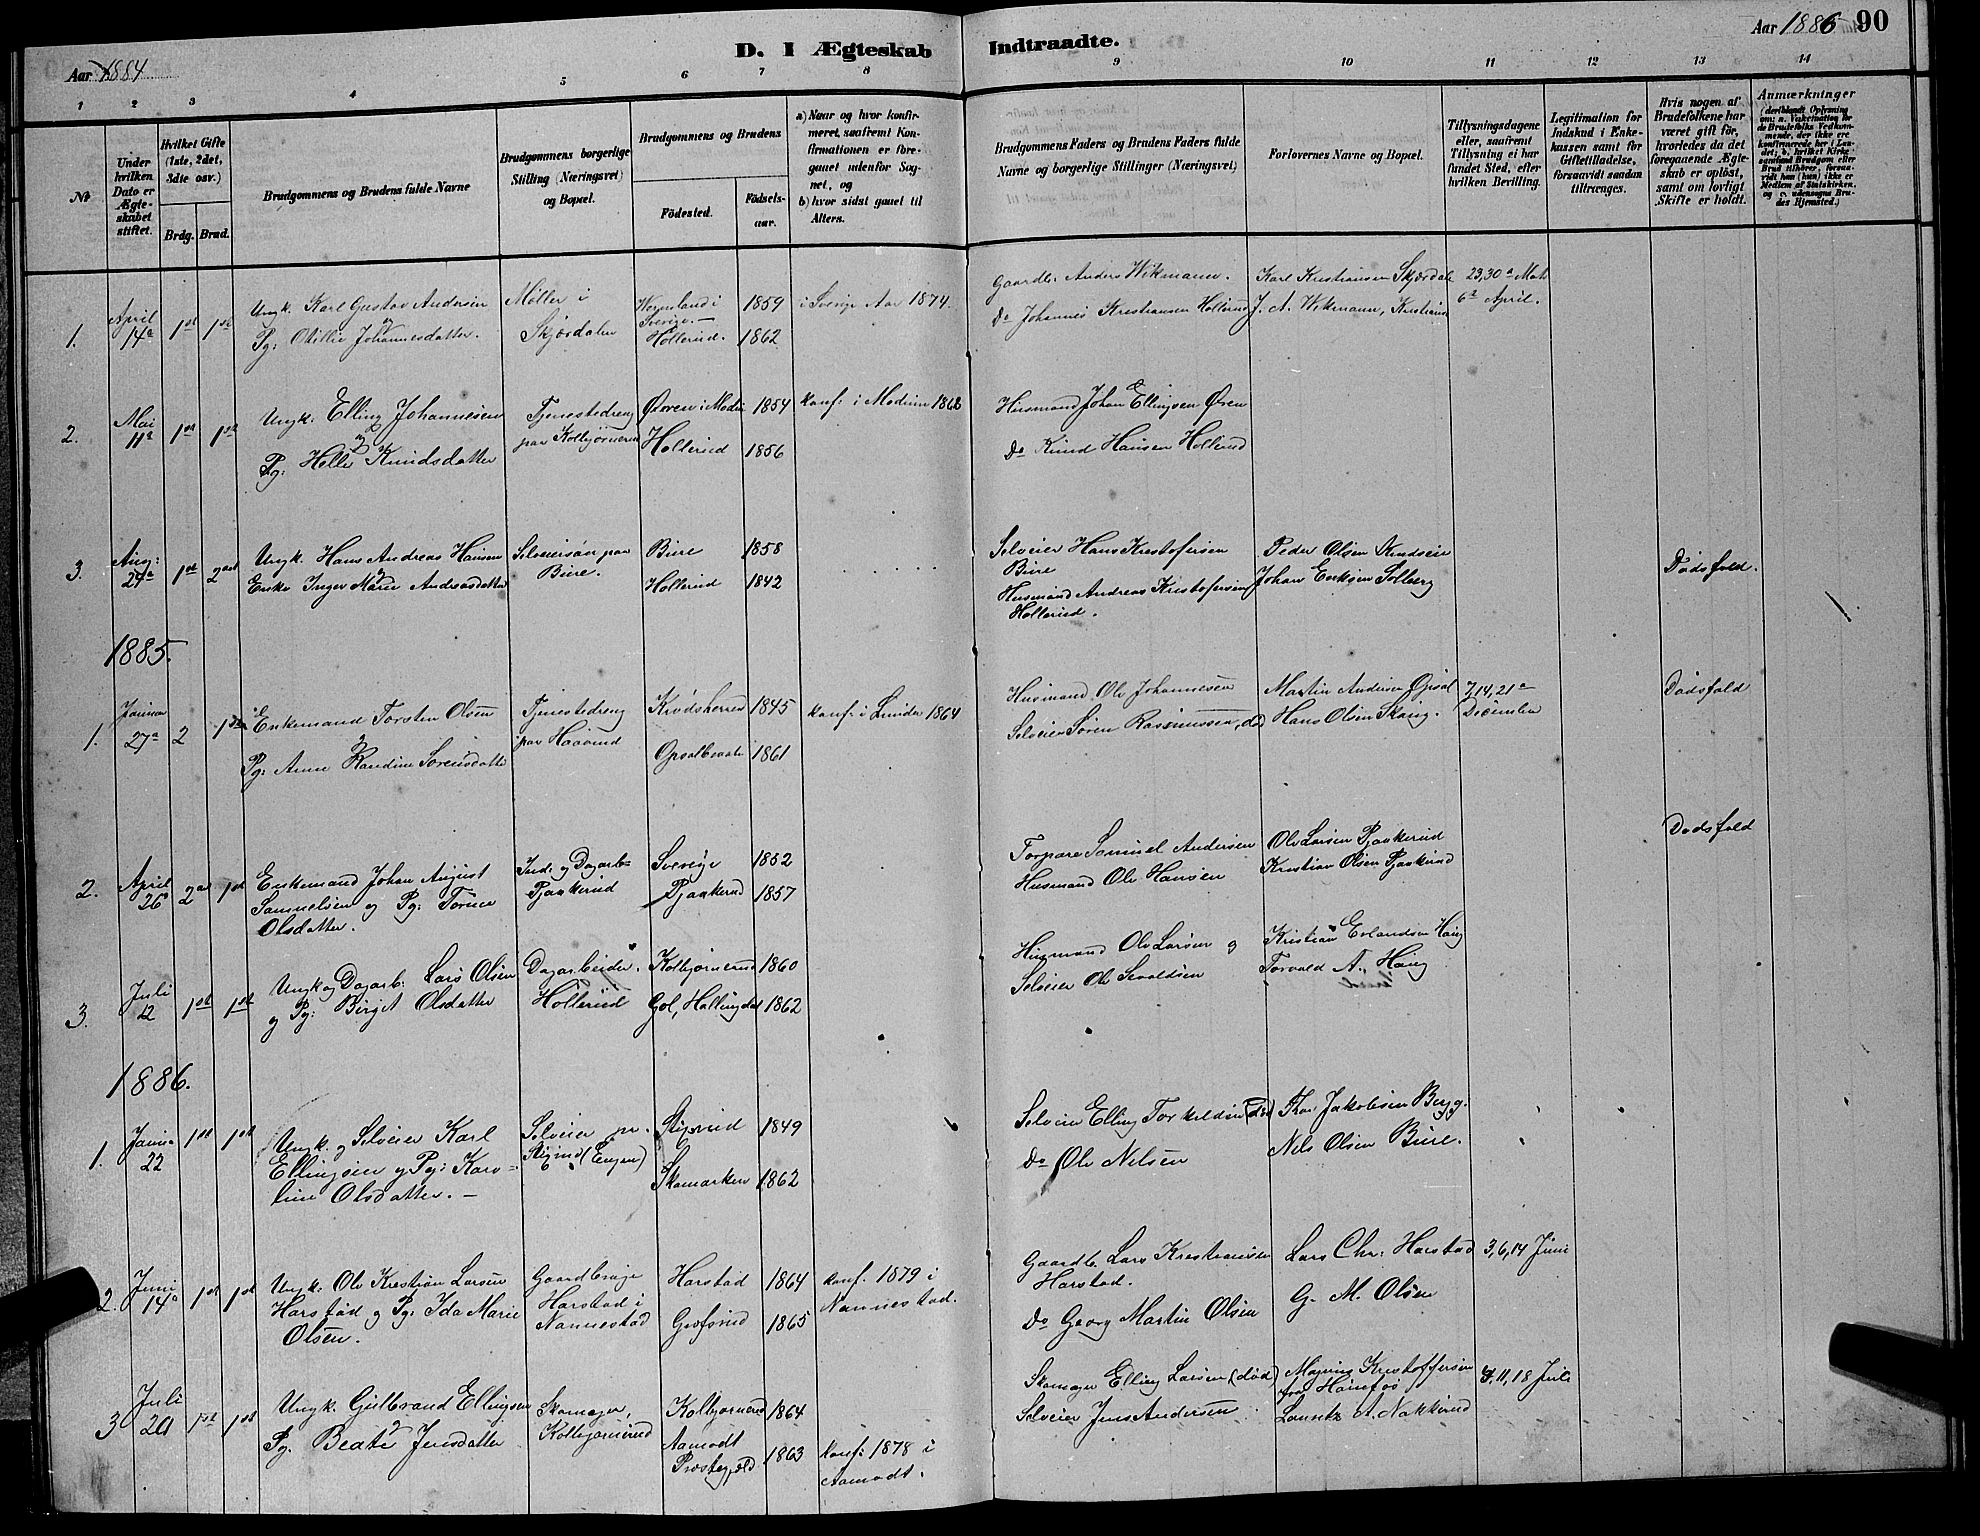 D. I Ægteskab Indtraadte.
Aar 1884
Aar 1886 90
1 2 3 4 5 6 7 8 9 10 11 12 13 14
№
Under hvilken Dato er Ægteskabet stiftet.
Hvilket Gifte (1ste, 2det, 3die osv.)
Brdg. Brud.
Brudgommens og Brudens fulde Navne
Brudgommens borgerlige Stilling (Næringsvei) og Bopæl.
Brudgommens og Brudens
Fødested.
Fødselsaar.
a) Naar og hvor konfirmeret, saafremt Konfirmationen er foregaaet udenfor Sognet, og
b) hvor sidst gaaet til Alters.
Brudgommens Faders og Brudens Faders fulde Navne og borgerlige Stillinger (Næringsvei)
Forlovernes Navne og Bopæl.
Tillysningsdagene eller, saafremt Tillysning ei har fundet Sted, efter hvilken Bevilling.
Legitimation for Indskud i Enkekassen samt for Giftetilladelse, forsaavidt saadan tiltrænges.
Hvis nogen af Brudefolkene har været gift før, hvorledes da det foregaaende Ægteskab er opløst, samt om lovligt Skifte er holdt.
Anmærkninger
1. April 14de 1ste 1ste
Ungk. Karl Gustav Andersen
og
Pg: Otillie Johannesdatter.
Møller i
Skjørdalen
Wermland i
Sverige.
1859
Hollerud. 1862
i Sverige Aar 1874.
Gaardb. Anders Wikmann.
Do Johannes Kristiansen Hollerud
Karl Kristiansen Skjørdalen
J. A. Wikmann, Kristiania
23, 30te Mat
6te April.
2. Mai 11te 1ste 1ste
Ungk. Elling Johannesen
og
Pg: Helle Knudsdatter
Tjenestedreng
paa Kolbjørnerud
Øvren i Modum 1854
Hollerud 1856
konf. i Modum 1868
Husmand Johan Ellingsen Øren
Do Knud Hansen Hollerud
3. Aug: 24de 1ste 2det
Ungk. Hans Andreas Hansen
og
Enke Inger Marie Andreasdatter
Selveiersøn paa
Bure.
Bure 1858
Hollerud 1842
Selveier Hans Kristofersen
Bure
Husmand Andreas Kristofersen
Hollerud.
Peder Olsen
Johan Eriksen Solberg
Dødsfald.
1885.
1. Januar 27de 2 1ste
Enkemand Torsten Olsen
og
Pg: Anne Randine Sørensdatter
Tjenestedreng
paa Haavind
Krødsherred 1845
Opsalbraate 1861
konf. i Lunder 1864
Husmand Ole Johannesen
Selveier Søren Rasmussen, død
Martin Andersen Opsal
Hans Olsen Skaug.
7, 14, 21de
December
Dødsfald
2. April 26de 2det 1ste
Enkemand Johan August
Samuelsen og Pg: Torine
Olsdatter.
Ind. og Dagarb.
Pjaakerud
Sverige 1852
Pjaakerud 1857
Torpare Samuel Andersen
Husmand Ole Hansen
Ole Larsen Pjaakerud
Kristian Olsen Pjaakerud
Dødsfald
3. Juli 12 1ste 1ste
Ungk og Dagarb. Lars Olsen
og Pg: Birgit Olsdatter
Dagarbeider.
Hollerud
Kolbjørnerud 1860
Gol, Hallingdal 1862
Husmand Ole Larsen og
Selveier Ole Sevaldsen
Kristian Erlandsen Haug
Torvald A. Haug
1886.
1. Januar 22 1ste 1ste
Ungk. og Selveier Karl
Ellingsen og Pg: Karo-
line Olsdatter.
Selveier pr.
Stigrud (Engen)
Stigrud 1849
Skamarken 1862
Selveier Elling Torkildsen (død)
Do Ole Nilsen
Thor Jakobsen Berg.
Nils Olsen Bure.
2. Juni 14de 1ste 1ste
Ungk. Ole Kristian Larsen
Harstad og Pg. Ida Marie
Olsen.
Gaardbruger
Harstad i
Nannestad
Harstad 1864
Grøfsrud 1865
konf. 1879 i
Nannestad.
Gaardb. Lars Kristiansen
Harstad.
Do Georg Martin Olsen
Lars Chr. Harstad
G. M. Olsen
3, 6, 14 Juni
3 Juli 20 1ste 1ste
Ungk. Gulbrand Ellingsen
og
Pg. Beate Jensdatter
Skomager,
Kolbjørnerud
Kolbjørnerud 1864
Aamodt
Præstegjæld 1863
konf. 1878 i
Aamodt.
Skomager Elling Larsen (død)
Selveier Jens Andersen
Magnus Kristoffersen
fra Hønefos
Laurits A. Nakkerud
4, 11, 18 Juli